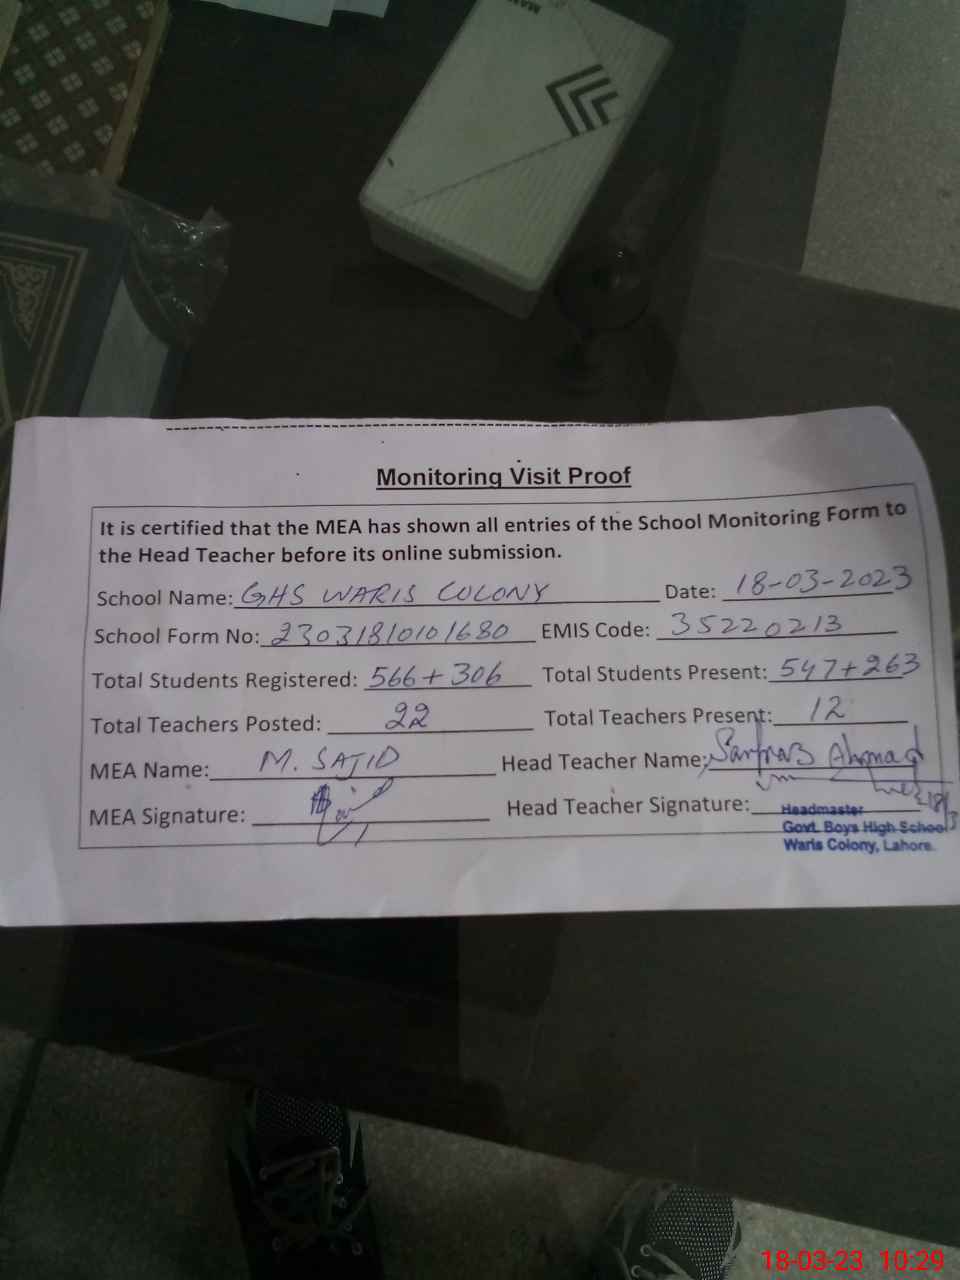 Monitoring Visit Proof
It is certified that the MEA has shown all entries of the School Monitoring Form to
the Head Teacher before its online submission.
School Name: GHS WARIS COLONY Date: 18-03-2023
School Form No: 2303181010 1680 EMIS Code: 35220213
Total Students Registered: 566+306 Total Students Present: 547+263
Total Teachers Posted: 22 Total Teachers Present: 12
MEA Name: M. SAJID Head Teacher Name: Sarfraz Ahmad
MEA Signature: Head Teacher Signature:
Headmaster
Govt. Boys High School
Waris Colony, Lahore.
18-03-23 10:29